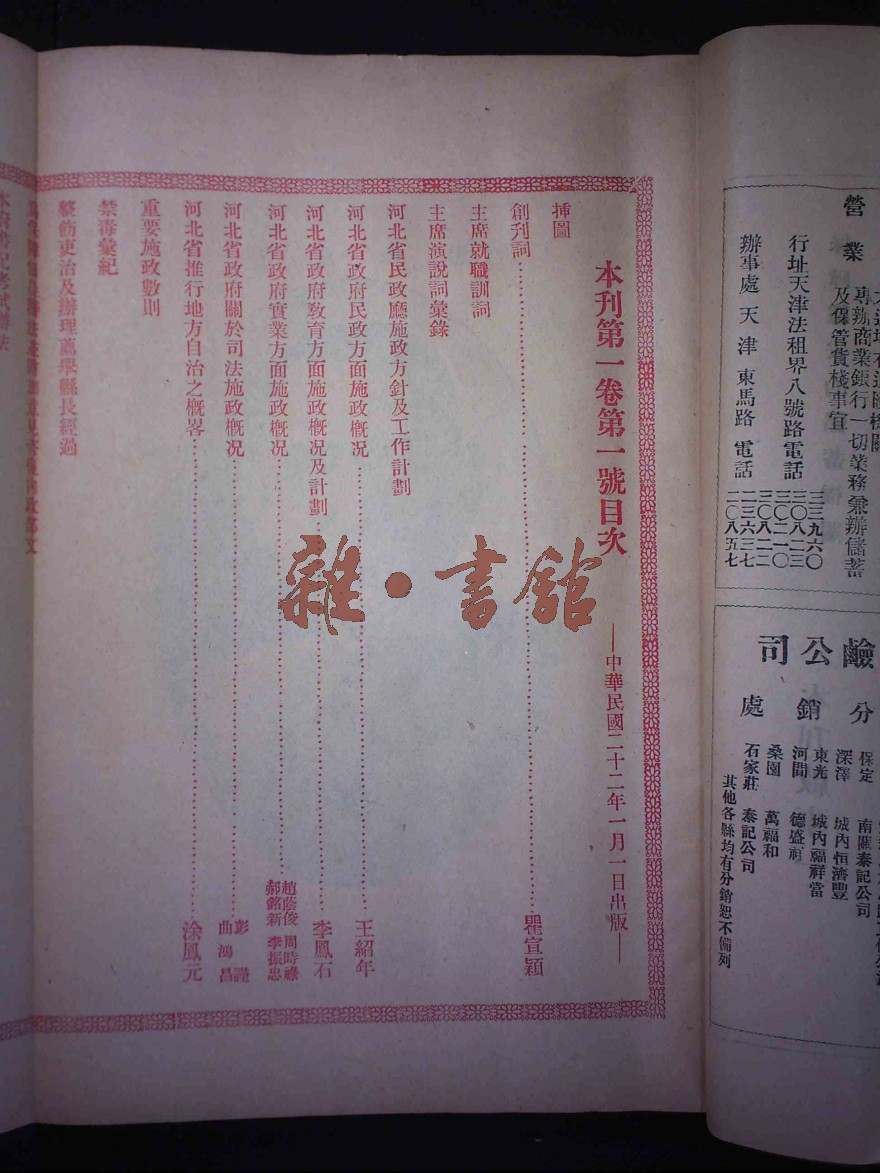 營業
專辦商業銀行一切業務兼辦儲蓄
及保管貨棧事宜
行址天津法租界八號路電話
三三九六〇
三〇八二三
三〇二一〇
三〇八二二
辦事處 天津 東馬路 電話
二三六三七
二〇八五七
鹼公司
分銷處
保定 南關泰記公司
深澤 城內恒濟豐
東光 城內福祥當
河間 德盛
桑園 萬福和
石家莊 泰記公司
其他各縣均有分銷恕不備列
本刊第一卷第一號目次 —中華民國二十二年一月一日出版—
挿圖
創刊詞 瞿宣穎
主席就職訓詞
主席演說詞彙錄
河北省民政廳施政方針及工作計劃
河北省政府民政方面施政概况 王紹年
河北省政府教育方面施政概况及計劃 李鳳石
河北省政府實業方面施政概况 趙蔭俊 周時 郝銘新 李振忠
河北省政府關於司法施政概况 彭謹 曲鴻昌
河北省推行地方自治之概畧 涂鳳元
重要施政數則
禁毒彙紀
整飭吏治及辦理薦舉縣長經過
本府書記考試辦法
雜·書館